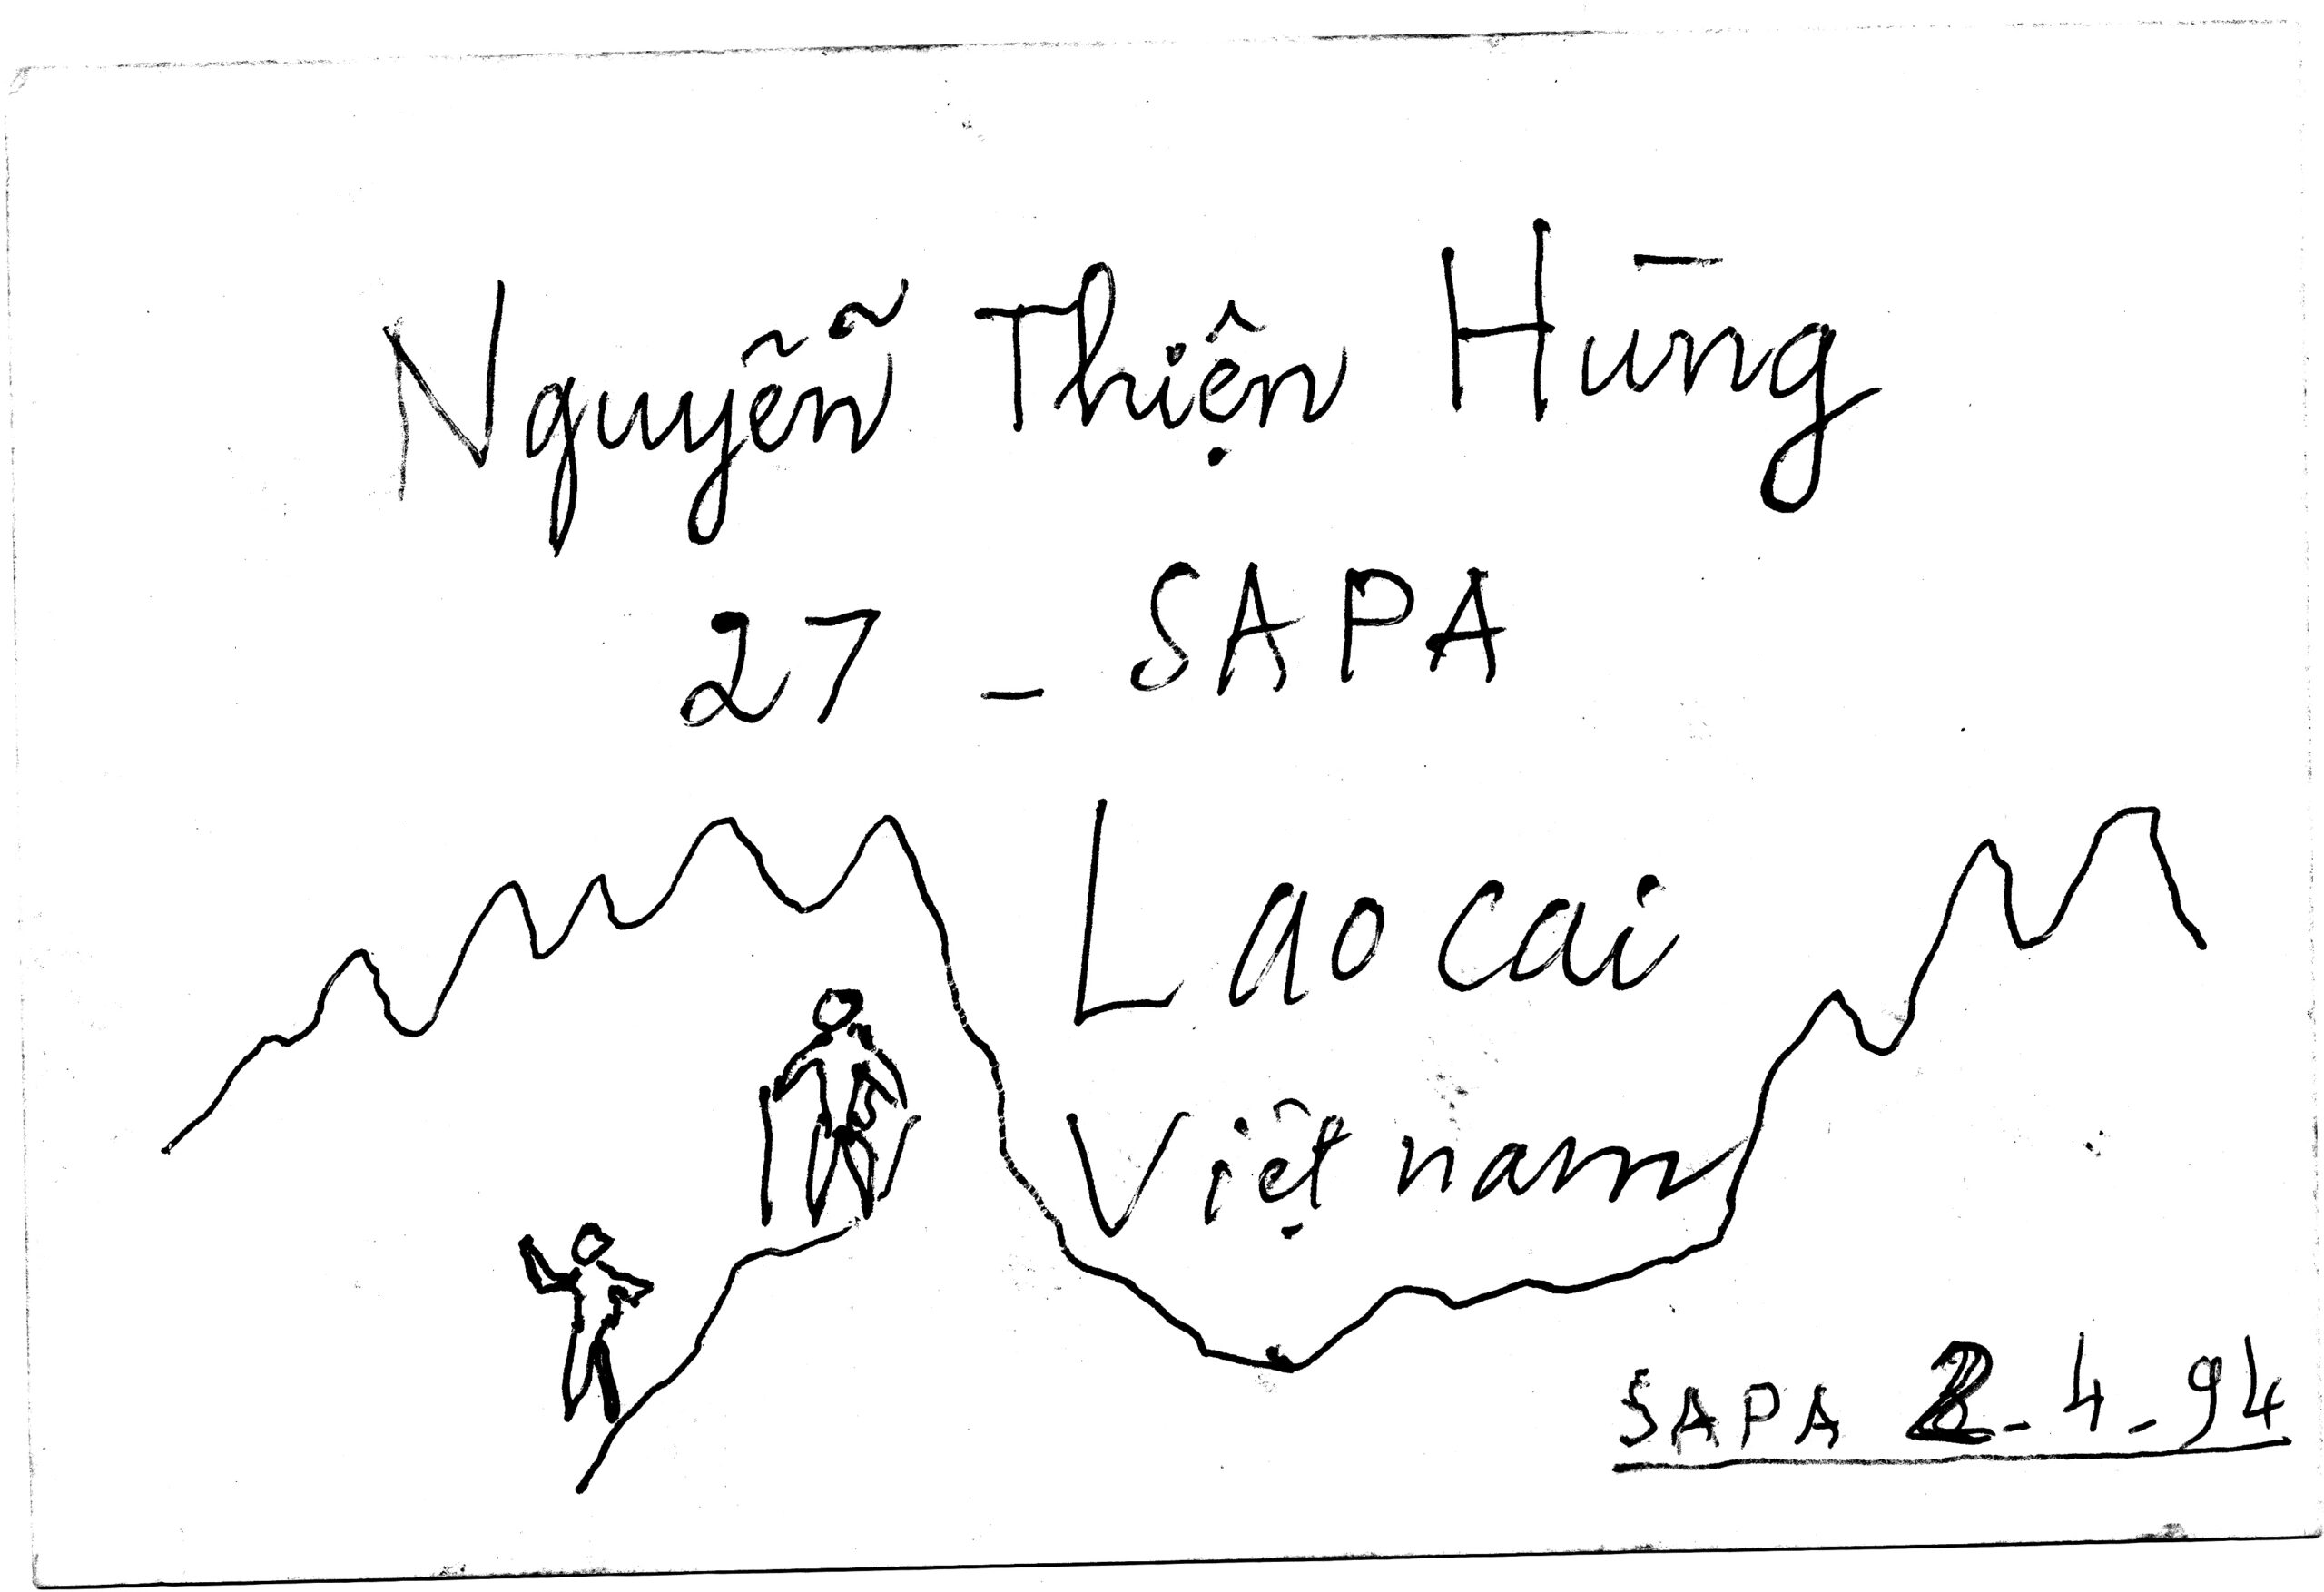 Nguyễn Thiện Hùng
27 - SAPA
Lao cai
Việt nam
SAPA 2-4-94